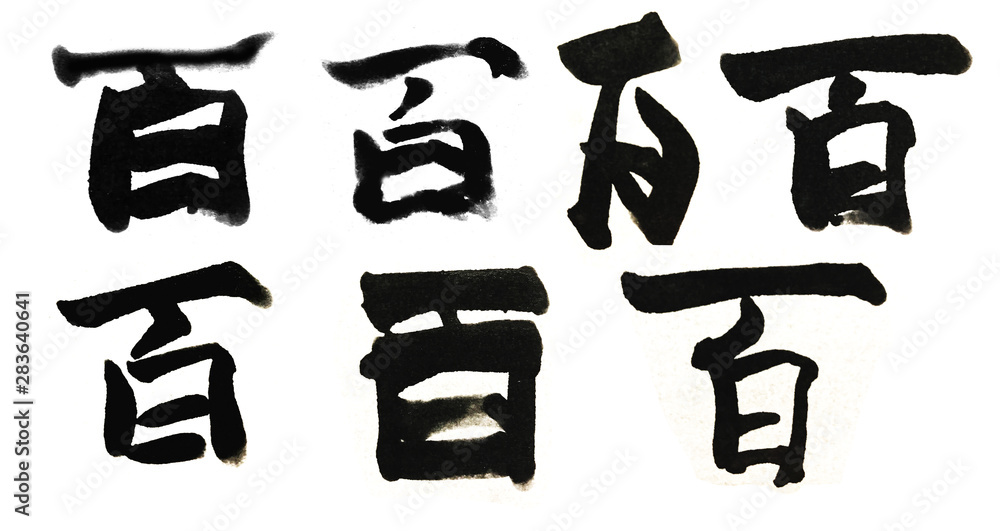 百 百 百 百
百 百 百
Adobe Stock | #283640641